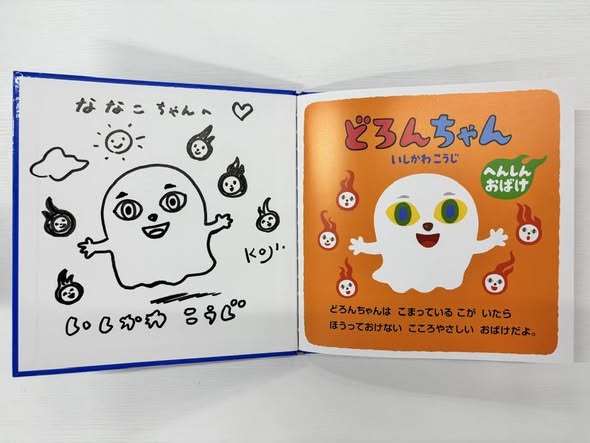 ななこちゃんへ
Koji.
いしかわ こうじ
どろんちゃん
いしかわ こうじ
へんしん
おばけ
どろんちゃんは こまっている こが いたら
ほうっておけない こころやさしい おばけだよ。